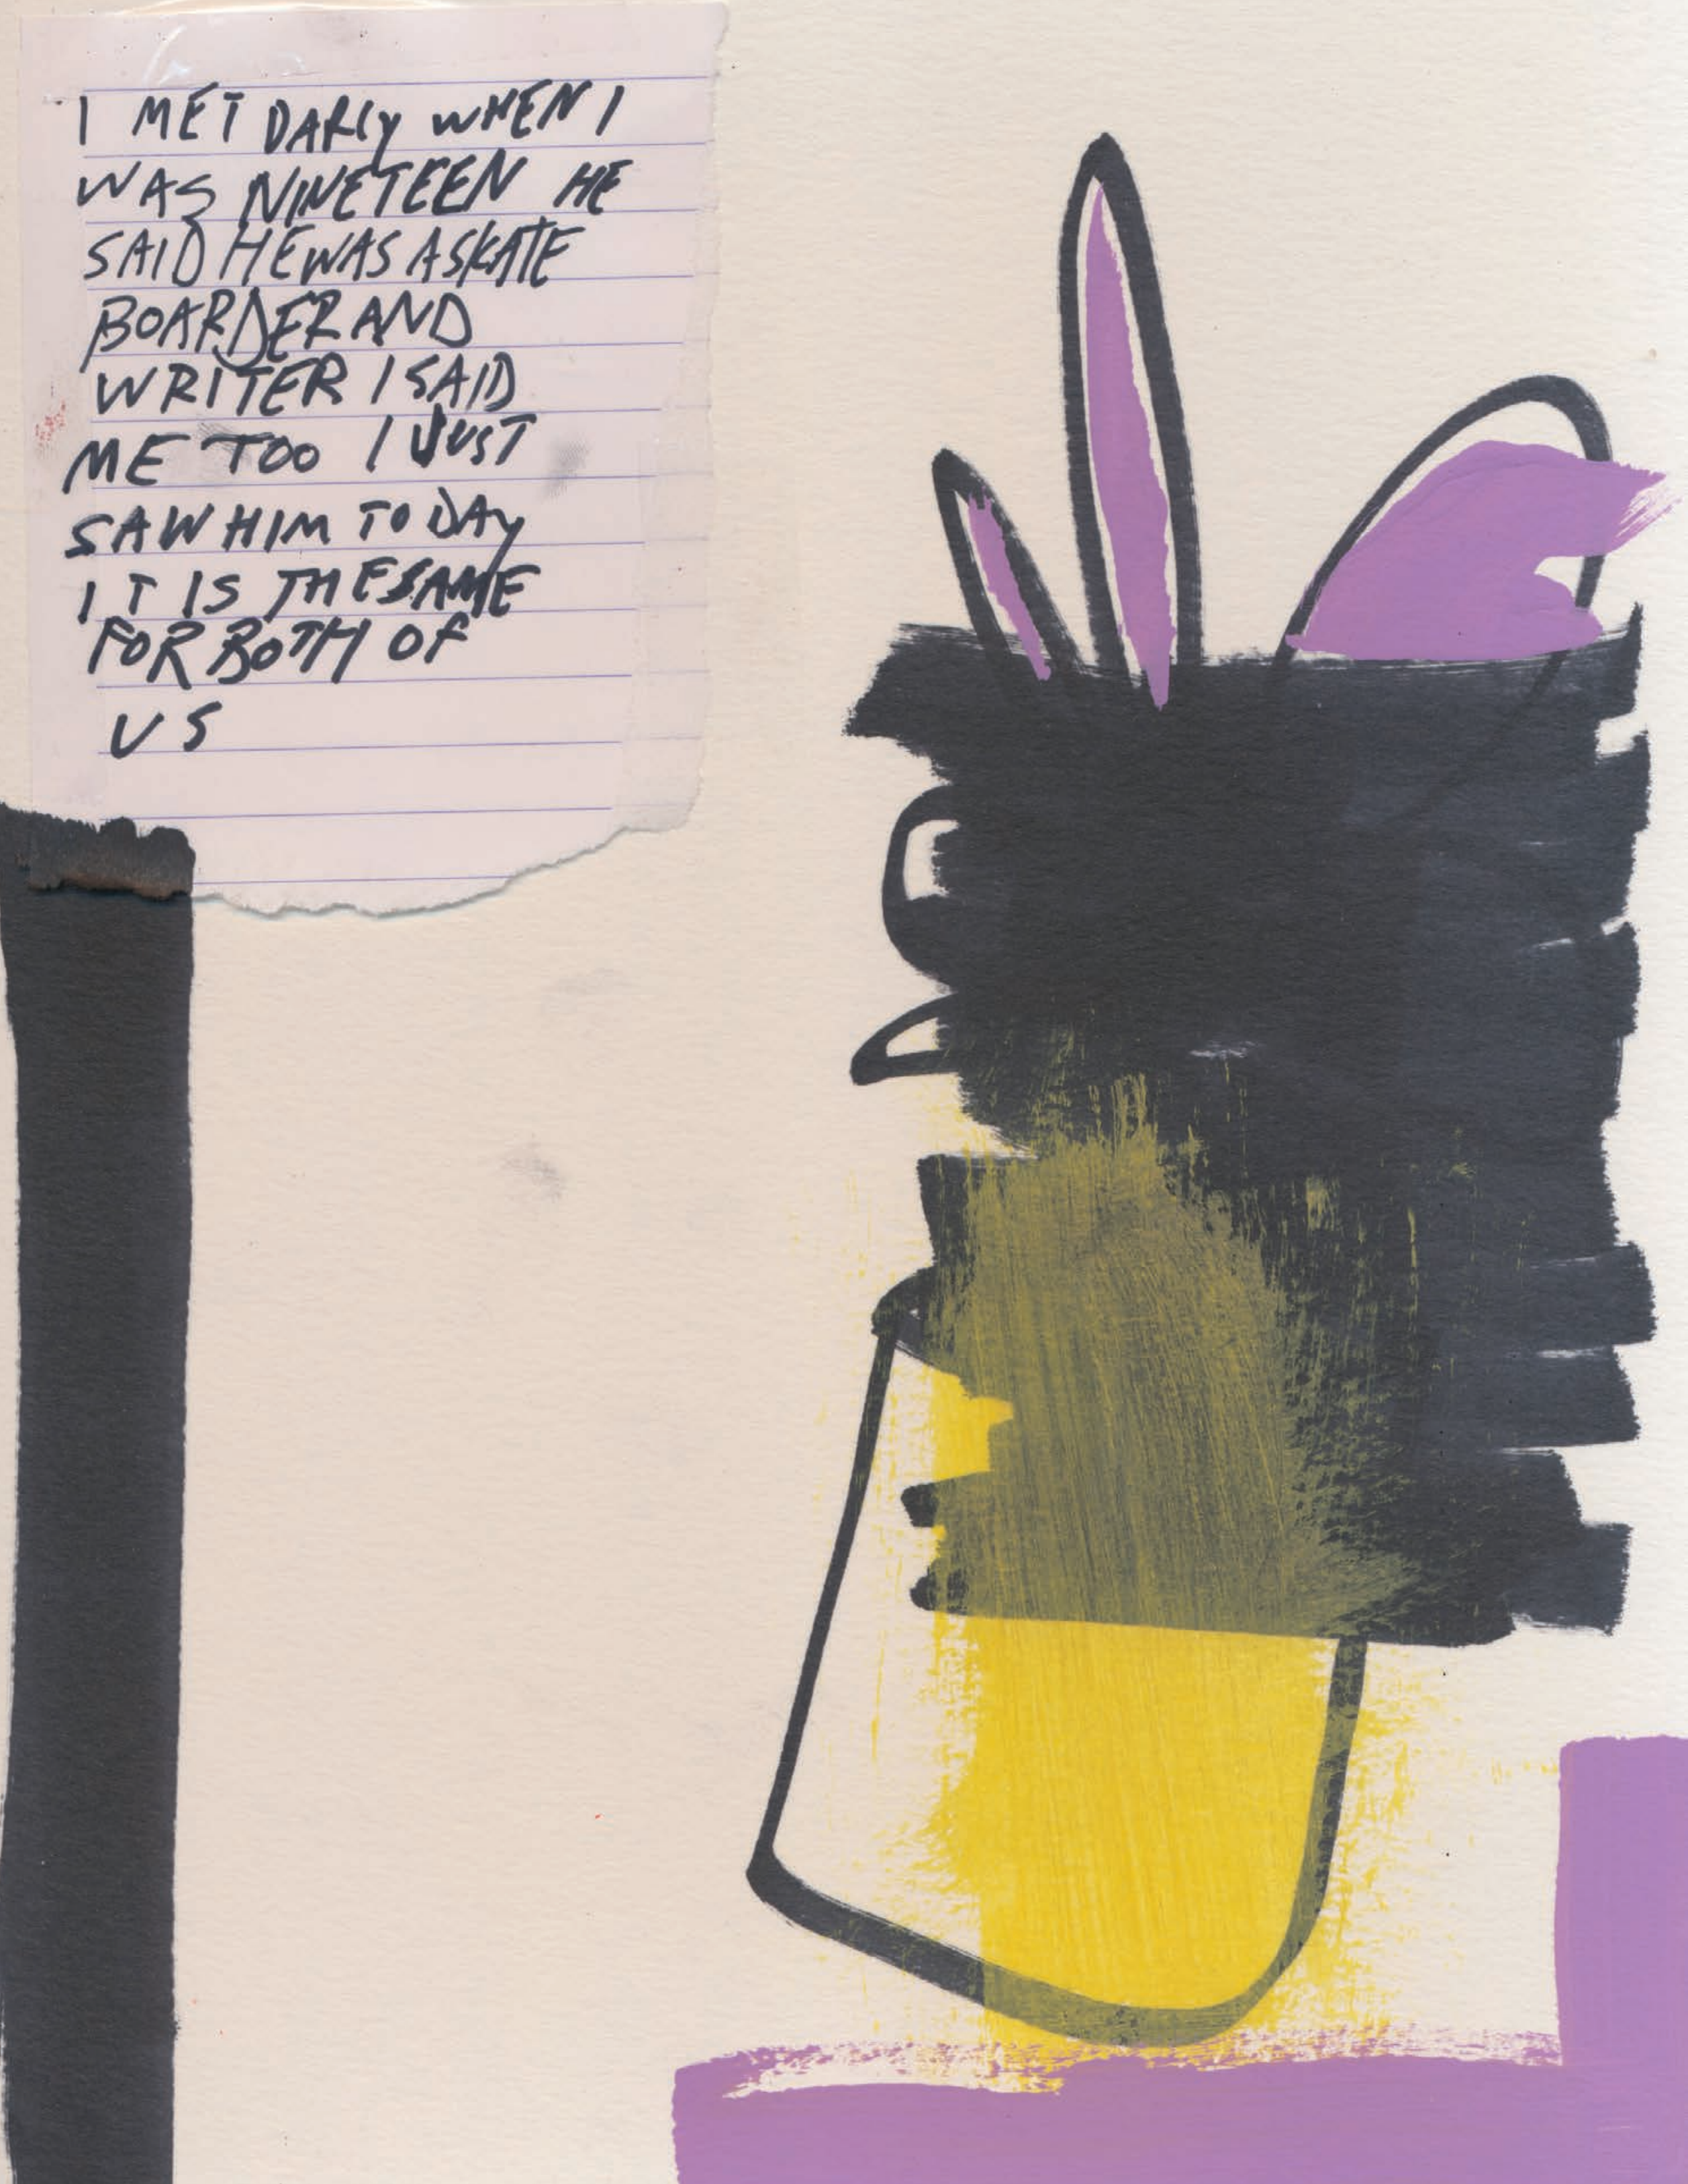 I MET DARLY WHEN I
WAS NINETEEN HE
SAID HE WAS A SKATE
BOARDER AND
WRITER I SAID
ME TOO I JUST
SAW HIM TODAY
IT IS THE SAME
FOR BOTH OF
US